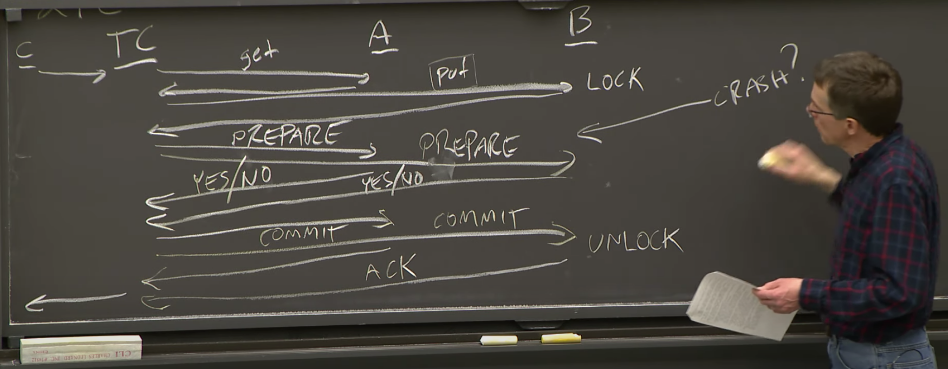 C TC A B
get
put
LOCK
CRASH?
PREPARE PREPARE
YES/NO YES/NO
COMMIT COMMIT
UNLOCK
ACK